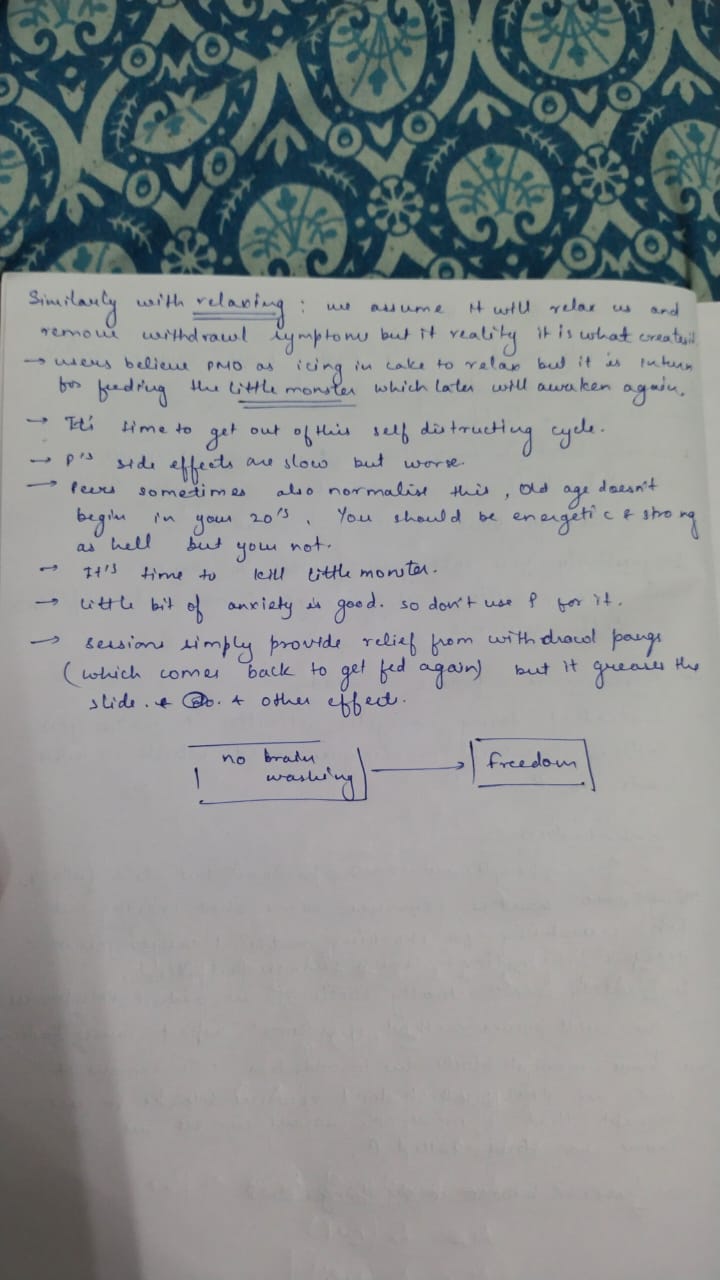 Similarly with relaxing : we assume it will relax us and
remove withdrawl symptoms but it reality it is what creates it
→ users believe PMO as icing in cake to relax but it is inturn
for feeding the little monster which later will awaken again.
→ It's time to get out of this self distructing cycle.
→ P's side effects are slow but worse.
→ Peers sometimes also normalise this, old age doesn't
begin in your 20's. You should be energetic & strong
as hell but your not.
→ It's time to kill little monster.
→ little bit of anxiety is good. so don't use P for it.
→ sessions simply provide relief from withdrawl pangs
(which comes back to get fed again) but it greases the
slide. + other effect.
no brain washing → freedom